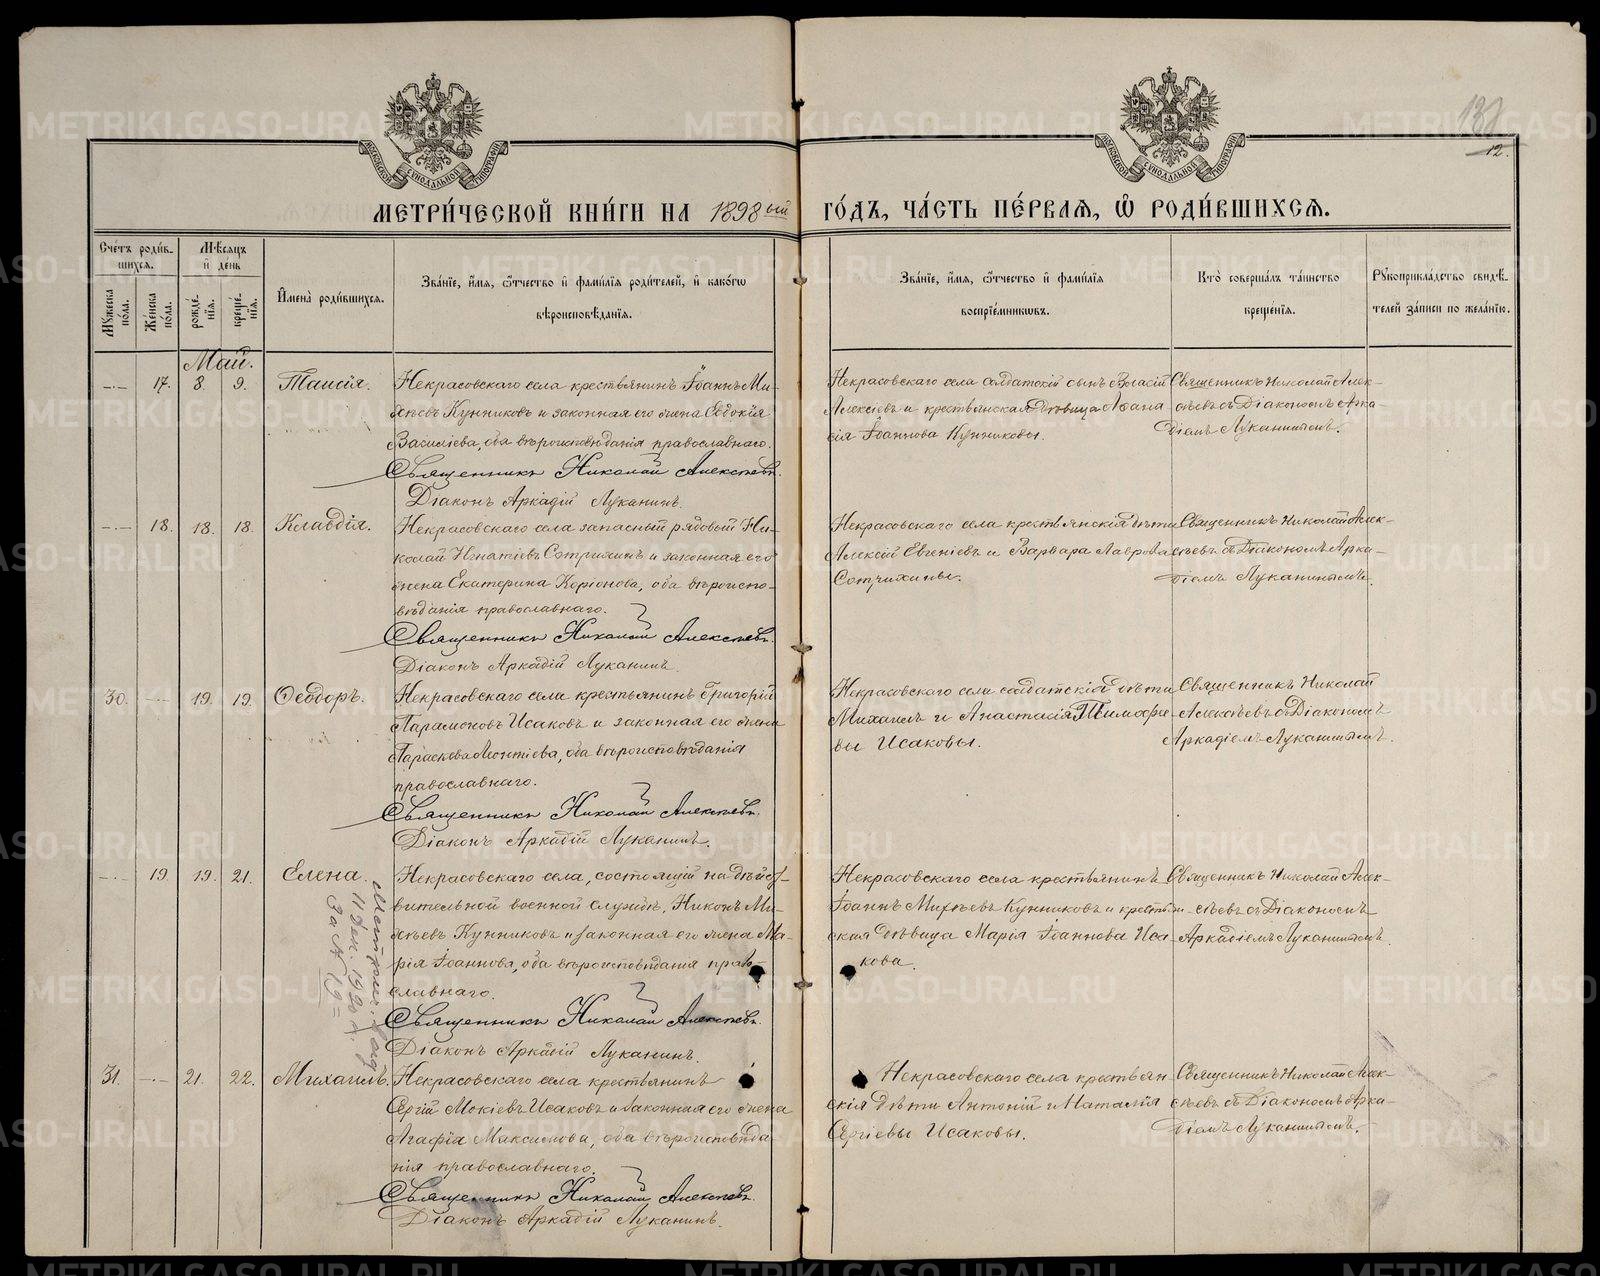 131
12.
МОСКОВСКОЙ СУНОДАЛЬНОЙ ТИПОГРАФІИ
МОСКОВСКОЙ СУНОДАЛЬНОЙ ТИПОГРАФІИ
МЕТРИ́ЧЕСКОЙ КНИ́ГИ НА 1898ый ГО́ДЪ, ЧА́СТЬ ПЕ́РВАЯ, Ѽ РОДИ́ВШИХСЯ.
Сче́тъ роди́вшихся.
Му́жеска по́ла.
Же́нска по́ла.
Мѣ́сяцъ и҆ де́нь
рожде́нїя.
креще́нїя.
И҆мена̀ роди́вшихся.
Зва́нїе, и҆́мя, ѻ҆́тчество и҆ фами́лїя роди́телей, и҆ како́гѡ
вѣроисповѣ́данїя.
Зва́нїе, и҆́мя, ѻ҆́тчество и҆ фами́лїя
воспрїе́мникѡвъ.
Кто̀ соверша́лъ та́инство
креще́нїя.
Рꙋкоприкла́дство свидѣ́-
телей за́писи по жела́нїю.
Май.
-.- 17. 8. 9. Таисія.
Некрасовскаго села крестьянинъ Іоаннъ Ми-
хѣевъ Кунниковъ и законная его жена Евдокія
Василіева, оба вѣроисповѣданія православнаго.
Священникъ Николай Алексѣевъ.
Діаконъ Аркадій Луканинъ.
Некрасовскаго села солдатскій сынъ Власій
Алексѣевъ и крестьянская дѣвица Афана
сія Іоаннова Кунниковы.
Священникъ Николай Алек-
сѣевъ съ Діакономъ Арка-
діемъ Луканинымъ.
-.- 18. 18. 18. Клавдія.
Некрасовскаго села запасный рядовый Ни-
колай Игнатіевъ Сотрихинъ и законная его
жена Екатерина Коріонова, оба вѣроиспо-
вѣданія православнаго.
Священникъ Николай Алексѣевъ.
Діаконъ Аркадій Луканинъ.
Некрасовскаго села крестьянскія дѣти
Алексій Евгеніев и Варвара Лаврова
Сотрихины.
Священникъ Николай Алек-
сѣевъ съ Діакономъ Арка-
діемъ Луканинымъ.
30. -.- 19. 19. Ѳеодоръ.
Некрасовскаго села крестьянинъ Григорій
Парамоновъ Исаковъ и законная его жена
Параскева Леонтіева, оба вѣроисповѣданія
православнаго.
Священникъ Николай Алексѣевъ.
Діаконъ Аркадій Луканинъ.
Некрасовскаго села солдатскія дѣти
Михаилъ и Анастасія Тимофѣе
вы Исаковы.
Священникъ Николай
Алексѣевъ съ Діакономъ
Аркадіемъ Луканинымъ.
-.- 19 19. 21. Елена.
Некрасовскаго села, состоящій на дѣйст-
вительной военной службѣ, Никонъ Ми-
хѣевъ Кунниковъ и законная его жена Ма-
рія Іоаннова, оба вѣроисповѣданія право-
славнаго.
Священникъ Николай Алексѣевъ.
Діаконъ Аркадій Луканинъ.
11 дек. 1920 г.
За № 19=
Некрасовскаго села крестьянинъ
Іоаннъ Михѣевъ Кунниковъ и крестьян-
ская дѣвица Марія Іоаннова Иса
кова.
Священникъ Николай Алек-
сѣевъ съ Діакономъ
Аркадіемъ Луканинымъ.
31. -.- 21. 22. Михаилъ.
Некрасовскаго села крестьянинъ
Сергій Мокіевъ Исаковъ и законная его жена
Агафія Максимова, оба вѣроисповѣда
нія православнаго.
Священникъ Николай Алексѣевъ.
Діаконъ Аркадій Луканинъ.
Некрасовскаго села крестьян
скія дѣти Антоній и Наталія
Сергіевы Исаковы.
Священникъ Николай Алек-
сѣевъ съ Діакономъ Арка-
діемъ Луканинымъ.
METRIKI.GASO-URAL.RU